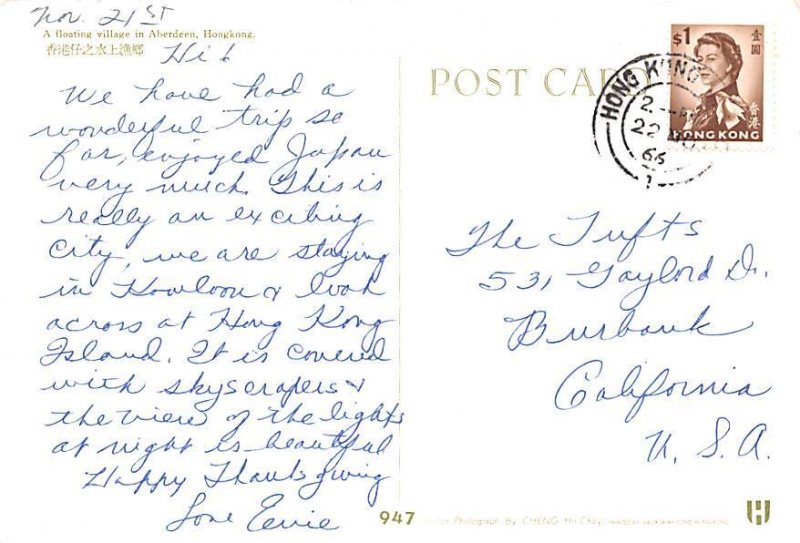 Nov. 21ST
A floating village in Aberdeen, Hongkong.
香港仔之水上漁鄉
Hi!
We have had a
wonderful trip so
far, enjoyed Japan
very much. This is
really an exciting
city, we are staying
in Kowloon & look
across at Hong Kong
Island. It is covered
with skyscrapers &
the view of the lights
at night is beautiful
Happy Thanksgiving
Love Ernie
POST CARD
$1
壹圓
香港
HONG KONG
HONG KONG
22 NO
66
1
The Tufts
531 Gaylord Dr.
Burbank
California
U. S. A.
947
Color Photograph By CHENG Hor-Choy